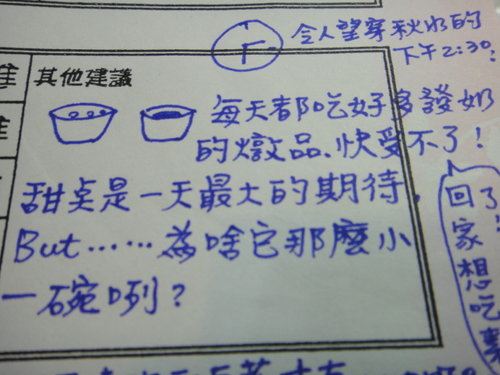 令人望穿秋水的
下午2:30!
其他建議
每天都吃好多發奶
的燉品、快受不了!
甜桌是一天最大的期待,
But……為啥它那麼小
一碗咧?
回了
家
想
吃